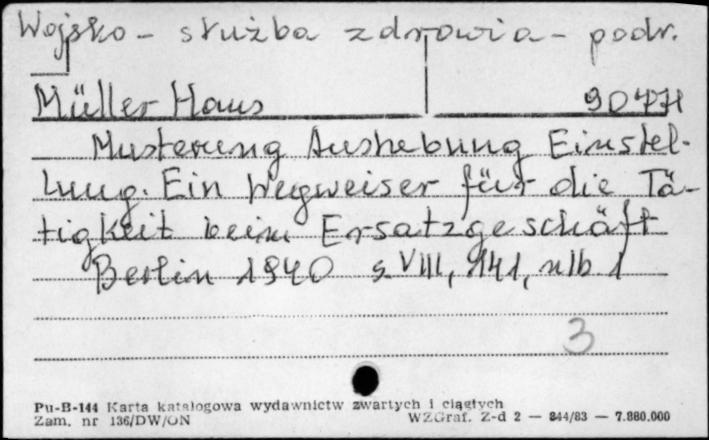 Wojsko - służba zdrowia - podr.
Müller Hans 90471
Musterung Aushebung Einstel-
lung. Ein Wegweiser für die Tä-
tigkeit beim Ersatzgeschäft
Berlin 1940 s. VIII, 141, nlb 1
3
Pu-B-144 Karta katalogowa wydawnictw zwartych i ciągłych
Zam. nr 136/DW/ON WZGraf. Z-d 2 — 844/83 — 7.880.000